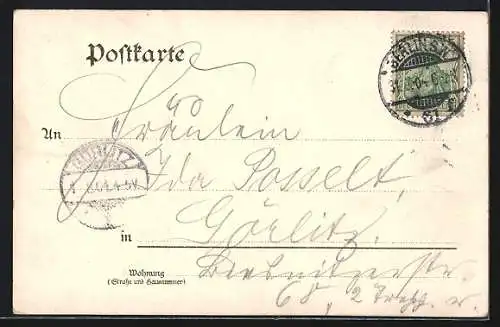 Postkarte
BERLIN S.W.
An Fräulein
GÖRLITZ
Ida Posselt,
in Görlitz.
Wohnung
(Straße und Hausnummer)
68, 2 Trepp. r.